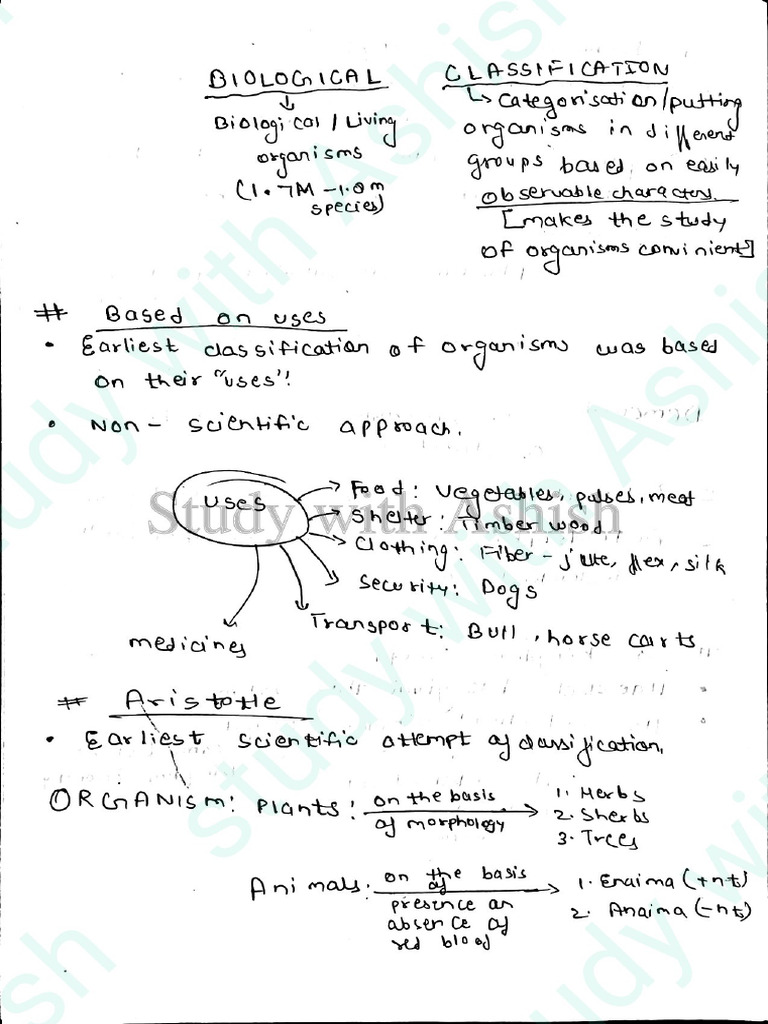 BIOLOGICAL
↓
Biological / Living
organisms
(1.7M - 1.8m
species)
CLASSIFICATION
↳ Categorisation/putting
organisms in different
groups based on easily
observable characters.
[makes the study
of organisms convinient]
# Based on uses
• Earliest classification of organisms was based
on their "uses"!
• Non - scientific approach.
uses
→ Food: vegetables, pulses, meat
→ Shelter: Timber wood
→ Clothing: Fiber - jute, flex, silk
→ Security: Dogs
→ Transport: Bull, horse carts
medicines
Study with Ashish
# Aristotle
• Earliest scientific attempt of classification.
ORGANISM: Plants: on the basis of morphology → 1. Herbs
2. Sherbs
3. Trees
Animals: on the basis of presence or absence of red blood → 1. Enaima (+nt)
2. Anaima (-nt)